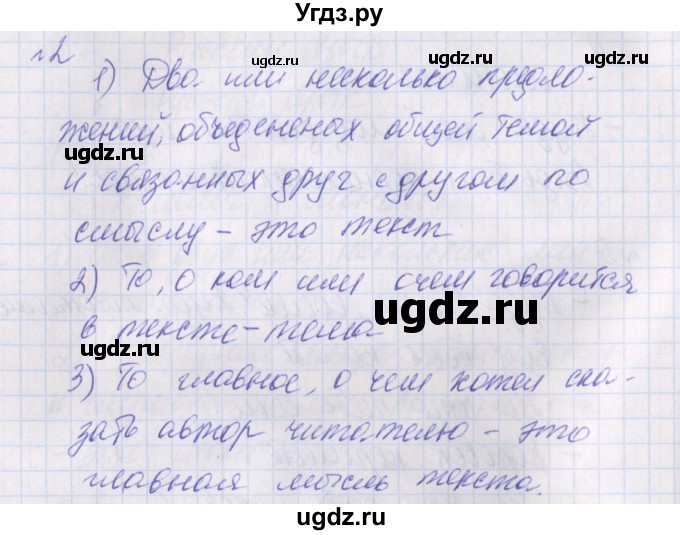 Угдз.ру
ugdz.ru ugdz.ru
№2
1) Два или несколько предло-
ugdz.ru
жений, объедененых общей темой
ugdz.ru
и связанных друг с другом по
смыслу – это текст
ugdz.ru
2) То, о ком или очем говорится
ugdz.ru
в тексте – тема
ugdz.ru
3) То главное, о чем хотел ска-
зать автор читателю – это
ugdz.ru ugdz.ru
главная мысль текста.
ugdz.ru